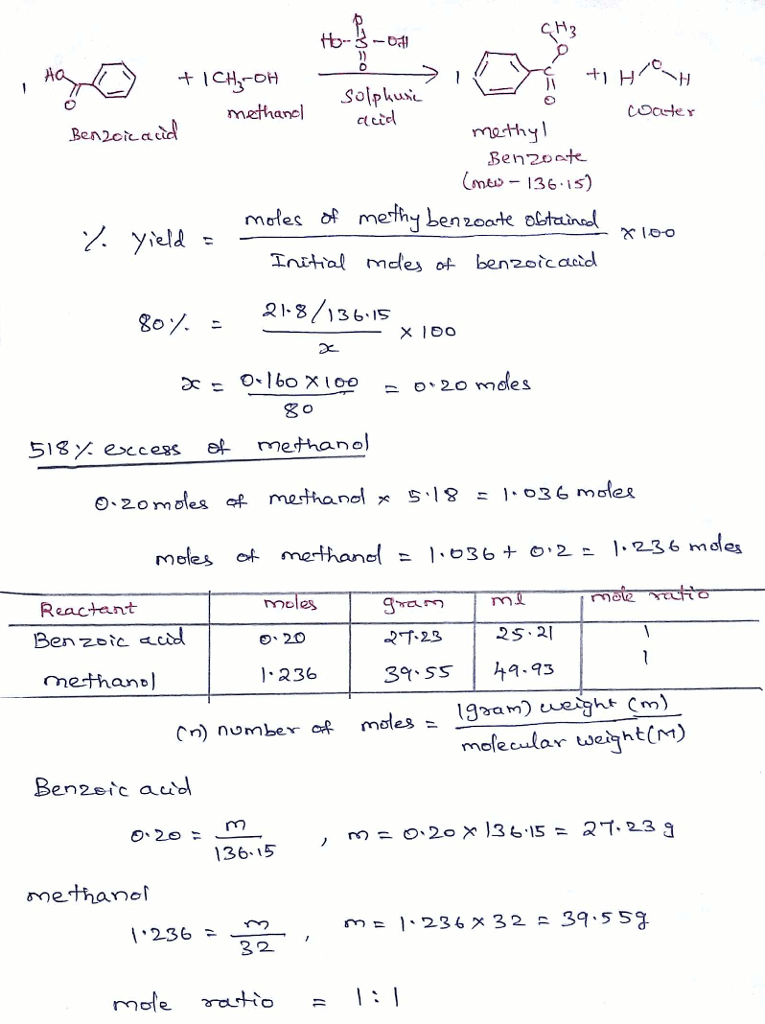 HO-S-OH
O
O
CH3
O
C
O
1 HO + 1 CH3-OH 1 +1 H O H
O
Benzoic acid methanol Sulphuric acid methyl Benzoate water
(mw - 136.15)
% Yield = moles of methy benzoate obtained × 100
Initial moles of benzoic acid
80% = 21.8/136.15 × 100
x
x = 0.160 × 100 = 0.20 moles
80
518% excess of methanol
0.20 moles of methanol × 5.18 = 1.036 moles
moles of methanol = 1.036 + 0.2 = 1.236 moles
Reactant moles gram ml mole ratio
Benzoic acid 0.20 27.23 25.21 1
methanol 1.236 39.55 49.93 1
(n) number of moles = (gram) weight (m)
molecular weight (M)
Benzoic acid
0.20 = m , m = 0.20 × 136.15 = 27.23 g
136.15
methanol
1.236 = m , m = 1.236 × 32 = 39.55g
32
mole ratio = 1:1